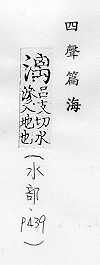 四聲篇海
漓 呂支切水
滲入地也
(水部·P439)